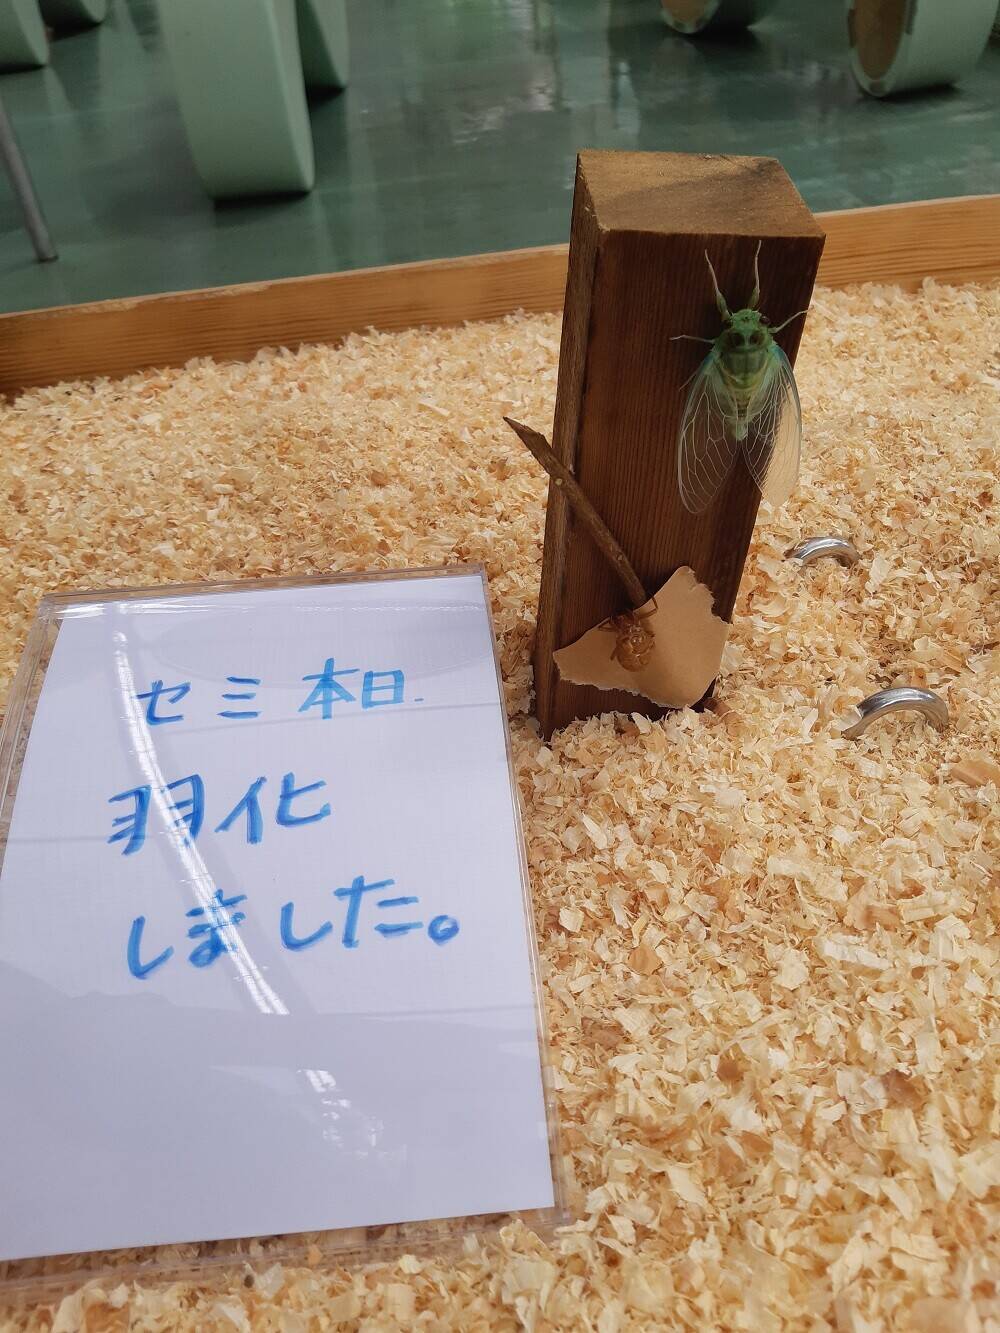 セミ本日
羽化
しました。